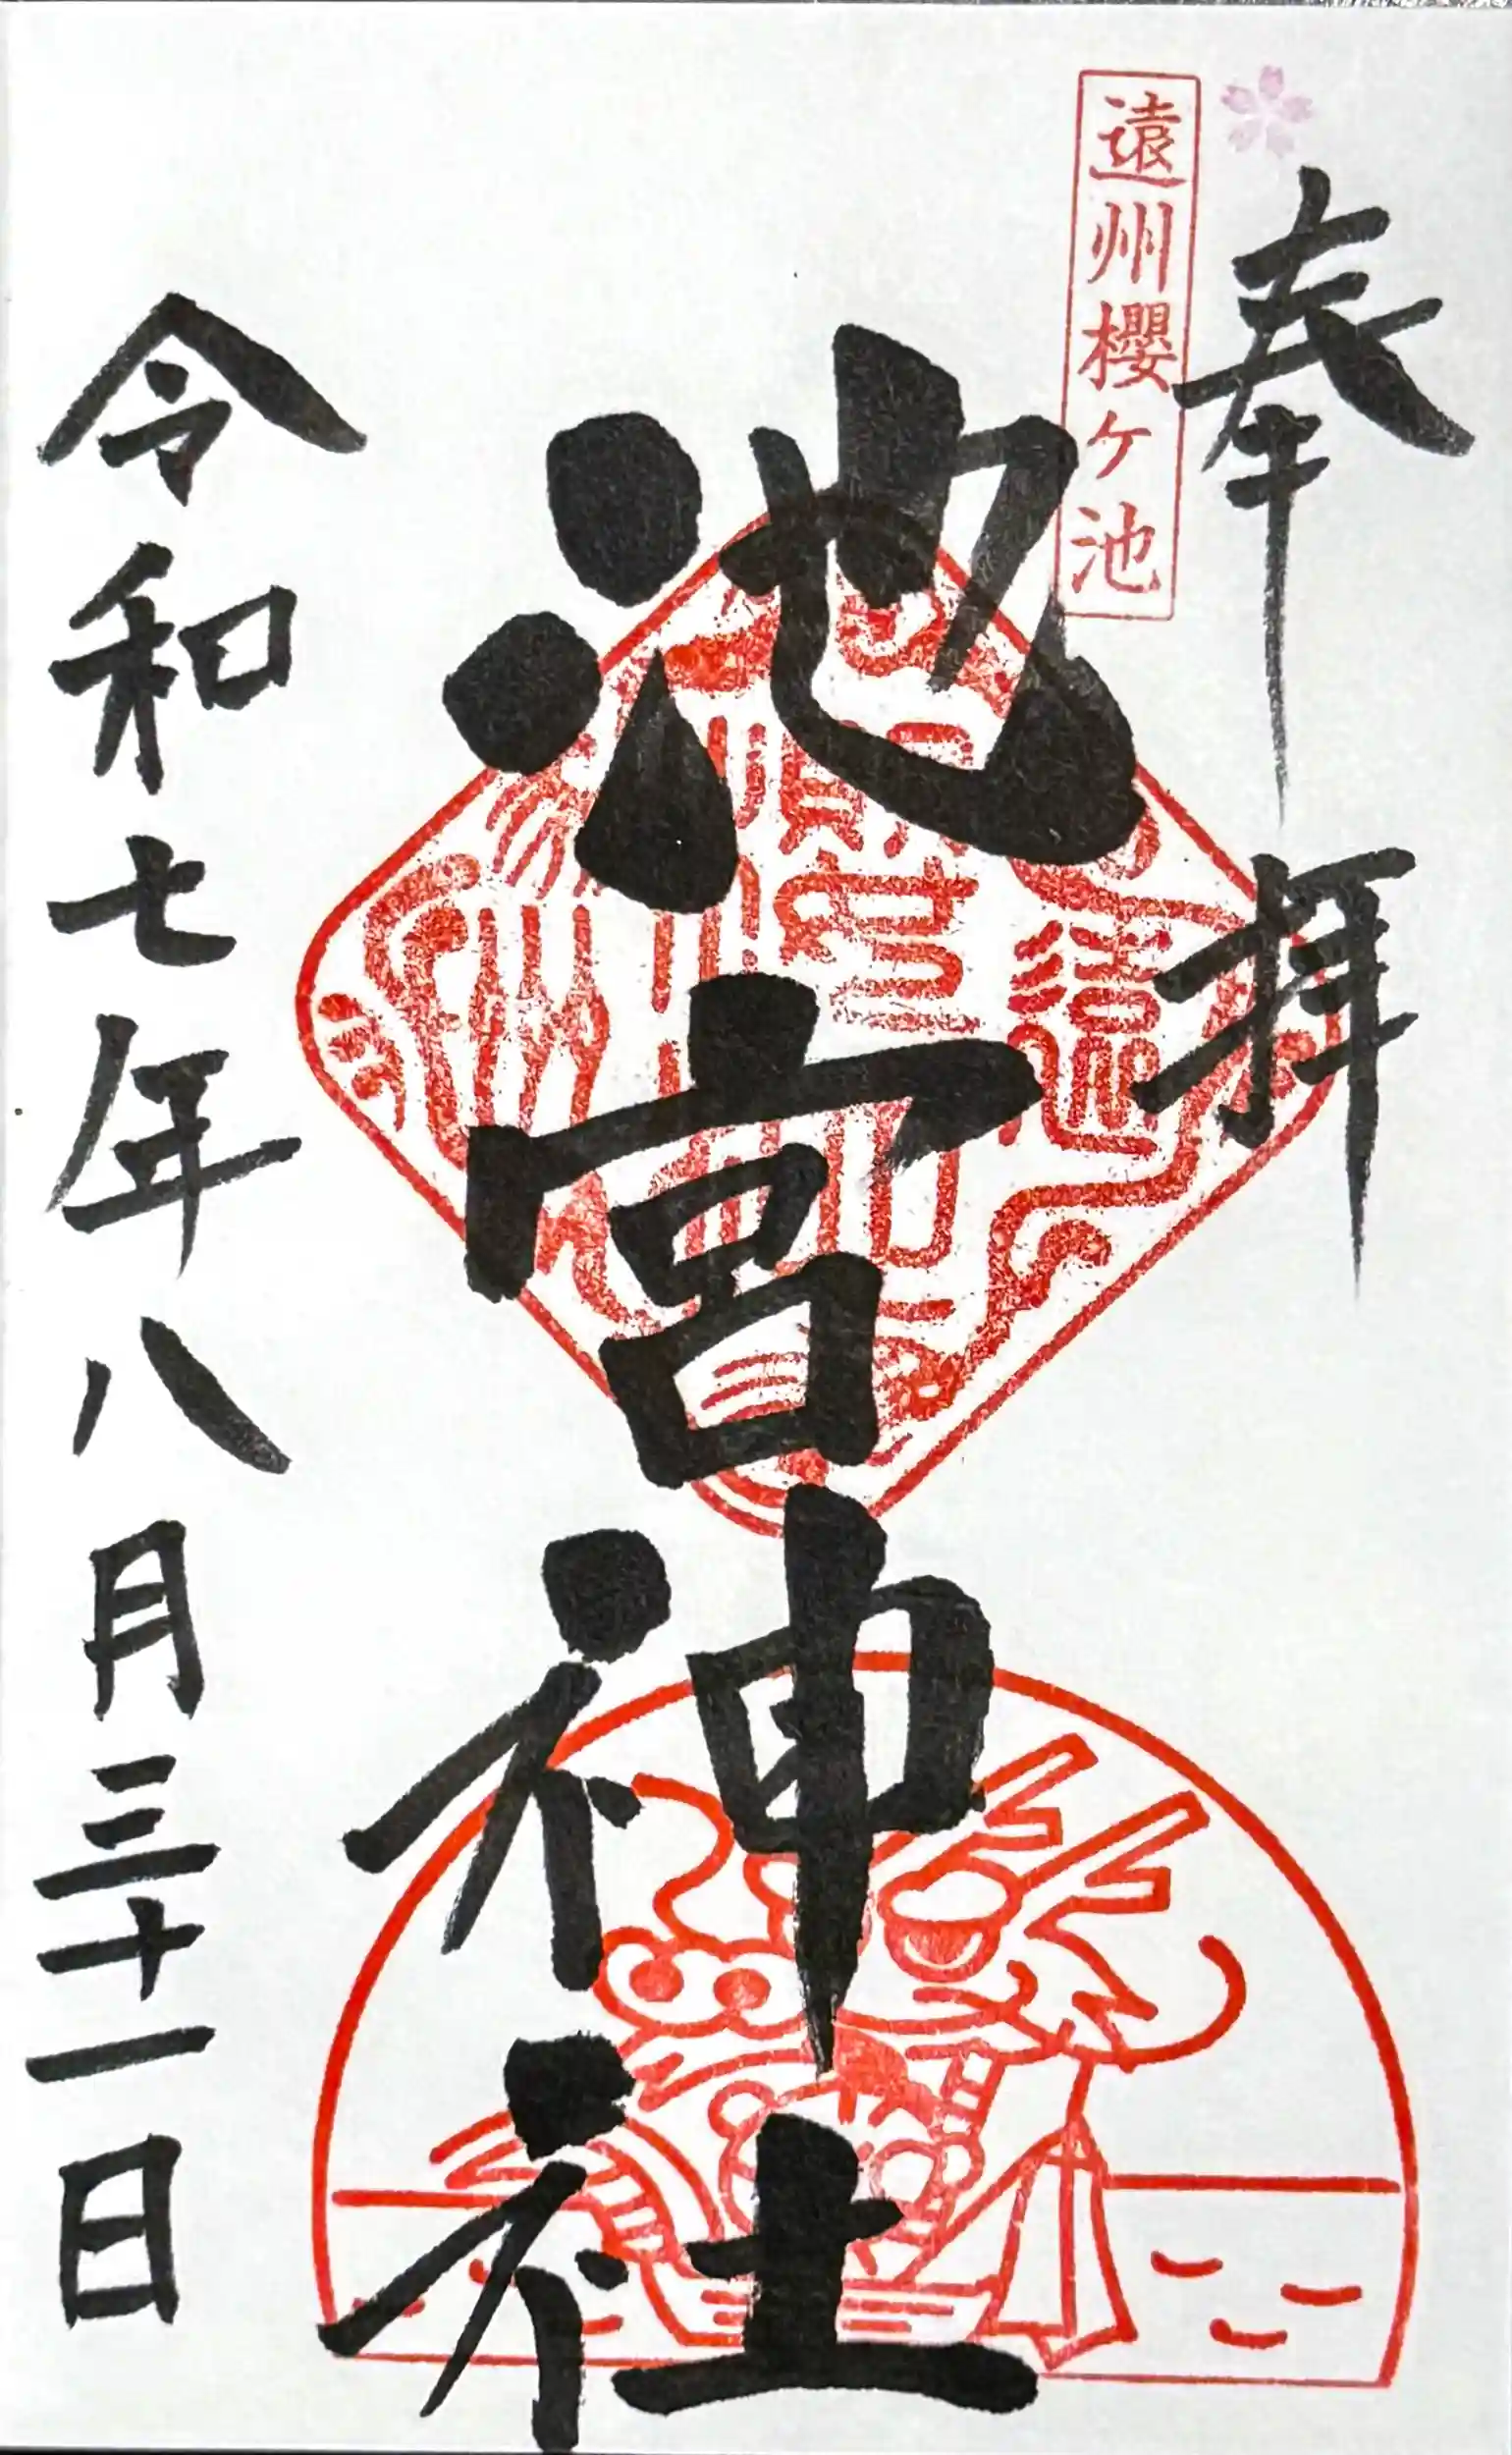 奉拝
遠州櫻ヶ池
池宮神社
令和七年八月三十一日